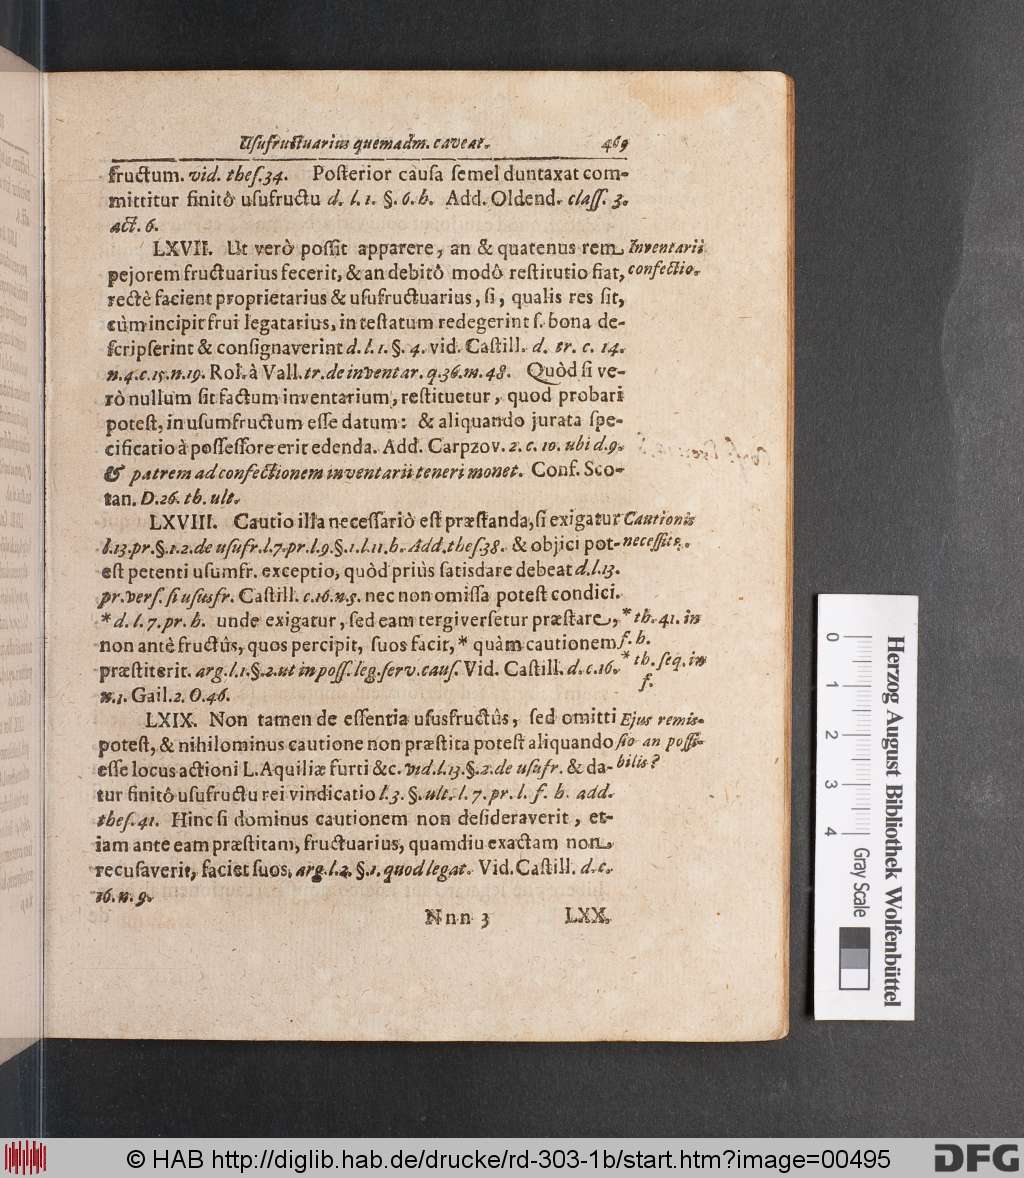 Uſufructuarius quemadm. caveat. 469
fructum. vid. theſ. 34. Poſterior cauſa ſemel duntaxat com-
mittitur finitô uſufructu d. l. 1. §. 6. h. Add. Oldend. claſſ. 3.
act. 6.
LXVII. Ut verò poſſit apparere, an & quatenus rem
Inventarii
pejorem fructuarius fecerit, & an debitô modô reſtitutio fiat,
confectio.
rectè facient proprietarius & uſufructuarius, ſi, qualis res ſit,
cùm incipit frui legatarius, in teſtatum redegerint ſ. bona de-
ſcripſerint & conſignaverint d. l. 1. §. 4. vid. Caſtill. d. tr. c. 14.
n. 4. c. 15. n. 19. Rol. à Vall. tr. de inventar. q. 36. m. 48. Quòd ſi ve-
rò nullum ſit factum inventarium, reſtituetur, quod probari
poteſt, in uſumfructum eſſe datum: & aliquando jurata ſpe-
cificatio à poſſeſſore erit edenda. Add. Carpzov. 2. c. 10. ubi d. 9.
& patrem ad confectionem inventarii teneri monet. Conf. Sco-
tan. D. 26. th. ult.
LXVIII. Cautio illa neceſſariò eſt præſtanda, ſi exigatur
Cautionis
l. 13. pr. §. 1. 2. de uſufr. l. 7. pr. l. 9. §. 1. l. 11. h. Add. theſ. 38. & objici pot-
neceſſitas.
eſt petenti uſumfr. exceptio, quòd priùs ſatisdare debeat d. l. 13.
pr. verſ. ſi uſusfr. Caſtill. c. 16. n. 5. nec non omiſſa poteſt condici.
* d. l. 7. pr. h. unde exigatur, ſed eam tergiverſetur præſtare,
* th. 41. in
non antè fructûs, quos percipit, ſuos facit, * quàm cautionem
f. h.
præſtiterit. arg. l. 1. §. 2. ut in poſſ. leg. ſerv. cauſ. Vid. Caſtill. d. c. 16.
* th. ſeq. in
n. 1. Gail. 2. O. 46.
f.
LXIX. Non tamen de eſſentia uſusfructûs, ſed omitti
Ejus remiſ-
poteſt, & nihilominus cautione non præſtita poteſt aliquando
ſio an poſſi-
eſſe locus actioni L. Aquiliæ furti &c. vid. l. 13. §. 2. de uſufr. & da-
bilis?
tur finitô uſufructu rei vindicatio l. 3. §. ult. l. 7. pr. l. f. h. add.
theſ. 41. Hinc ſi dominus cautionem non deſideraverit, et-
iam ante eam præſtitam, fructuarius, quamdiu exactam non
recuſaverit, faciet ſuos, arg. l. 2. §. 1. quod legat. Vid. Caſtill. d. c.
16. n. 9.
Nnn 3 LXX.
0 1 2 3 4
Gray Scale
Herzog August Bibliothek Wolfenbüttel
© HAB http://diglib.hab.de/drucke/rd-303-1b/start.htm?image=00495
DFG